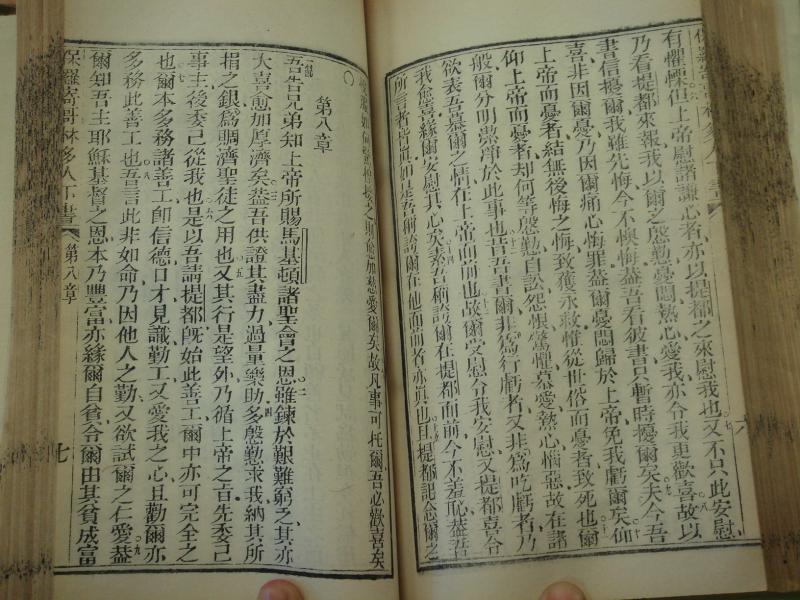 有懼慄但上帝慰諸謙心者亦以提都之來慰我也又不只此安慰
乃看提都來報我以爾之慇勤憂悶熱心愛我亦令我更歡喜故以
書信擾爾我雖先悔今不懊悔葢吾看彼書只暫時擾爾矣夫今吾
喜非因爾憂乃因爾痛心悔罪葢爾憂悶歸於上帝免我虧爾矣仰
上帝而憂者結無後悔之悔致獲永救惟從世俗而憂者致死也爾
仰上帝而憂者却何等慇勤自訟怨恨驚懼慕愛熱心惱惡故在諸
般爾分明潔凈於此事也昔吾書爾非爲行虧者又非爲吃虧者乃
欲表吾慕爾之情在上帝面前也故爾受慰令我安慰又提都喜合
我愈喜緣爾安慰其心矣素吾稱譽爾在提都面前今不羞恥葢吾
所言者皆眞如是吾稱譽爾在他面前者亦眞也且提都記念爾之
則愈加慈愛爾矣故凡事可托爾吾必歡喜矣
第八章
吾告兄弟知上帝所賜馬基頓諸聖會之恩雖鍊於艱難窮之其亦
大喜愈加厚濟矣葢吾供證其盡力過量樂助多慇懃求我納其所
捐之銀爲賙濟聖徒之用也又其行是望外乃循上帝之旨先委己
事主後委己從我也是以吾請提都旣始此善工爾中亦可完全之
也爾本多務諸善工卽信德口才見識勤工又愛我之心且勸爾亦
多務此善工也吾言此非如命乃因他人之勤又欲試爾之仁愛葢
爾知吾主耶穌基督之恩本乃豐富亦緣爾自貧令爾由其貧成富
保羅寄哥林多人下書
第八章
七